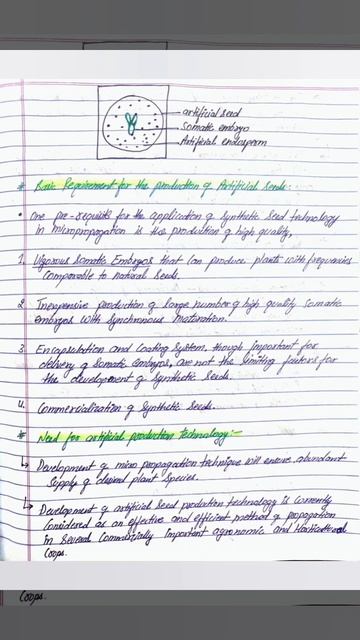 artificial seed
Somatic embryo
Artificial endosperm
* Basic Requirement for the production of Artificial Seeds:-
• One pre-requisite for the application of Synthetic Seed technology
in micropropagation is the production of high quality.
1. Vigorous Somatic Embryos that can produce plants with frequencies
comparable to natural seeds.
2. Inexpensive production of large number of high quality Somatic
embryos with Synchronous maturation.
3. Encapsulation and Coating System, though important for
delivery of Somatic Embryos, are not the limiting factors for
the development of Synthetic Seeds.
4. Commercialization of Synthetic Seeds.
* Need for artificial production technology:-
↳ Development of micro propagation technique will ensure abundant
Supply of desired plant Species.
↳ Development of artificial Seed production technology is Currently
Considered as an effective and efficient method of propagation
in Several Commercially important agronomic and Horticultural
Coops.
Coops.